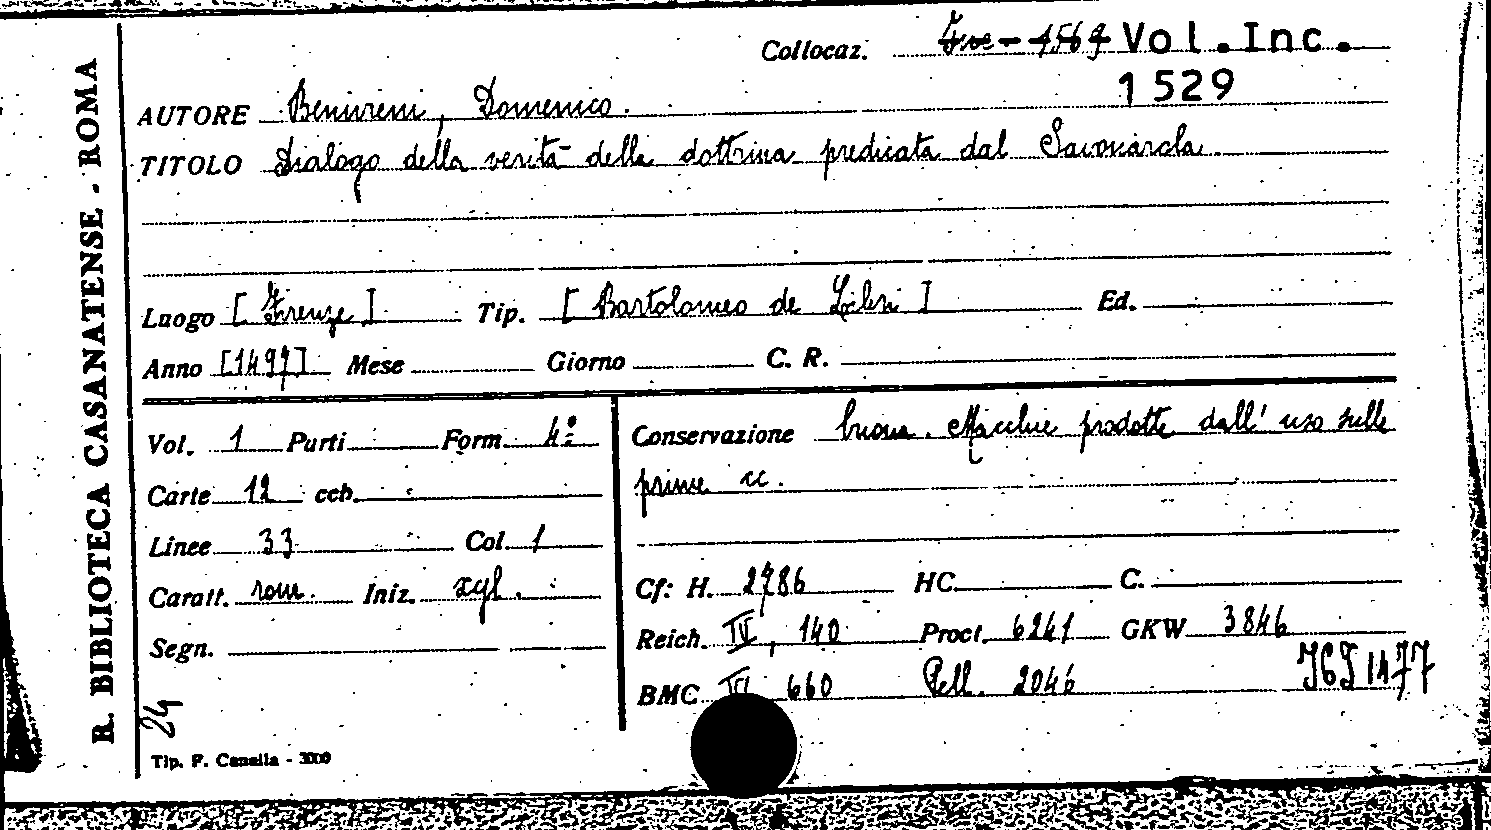 R. BIBLIOTECA CASANATENSE - ROMA
Collocaz. Inc - 1569 Vol. Inc.
1529
AUTORE Benivieni, Domenico.
TITOLO Dialogo della verità della dottrina predicata dal Savonarola.
Luogo [Firenze] Tip. [Bartolomeo de Libri] Ed.
Anno [1497] Mese Giorno C. R.
Vol. 1 Parti Form. 4º
Carte 12 ccb.
Linee 33 Col. 1
Caratt. rom. Iniz. xyl.
Segn.
24
Conservazione buona. Macchie prodotte dall' uso sulle
prime cc.
Cf: H. 2786 HC. C.
Reich. IV, 140 Proct. 6241 GKW 3846
BMC 660 Pell. 2046 IGI 1477
Tip. F. Canella - 3000